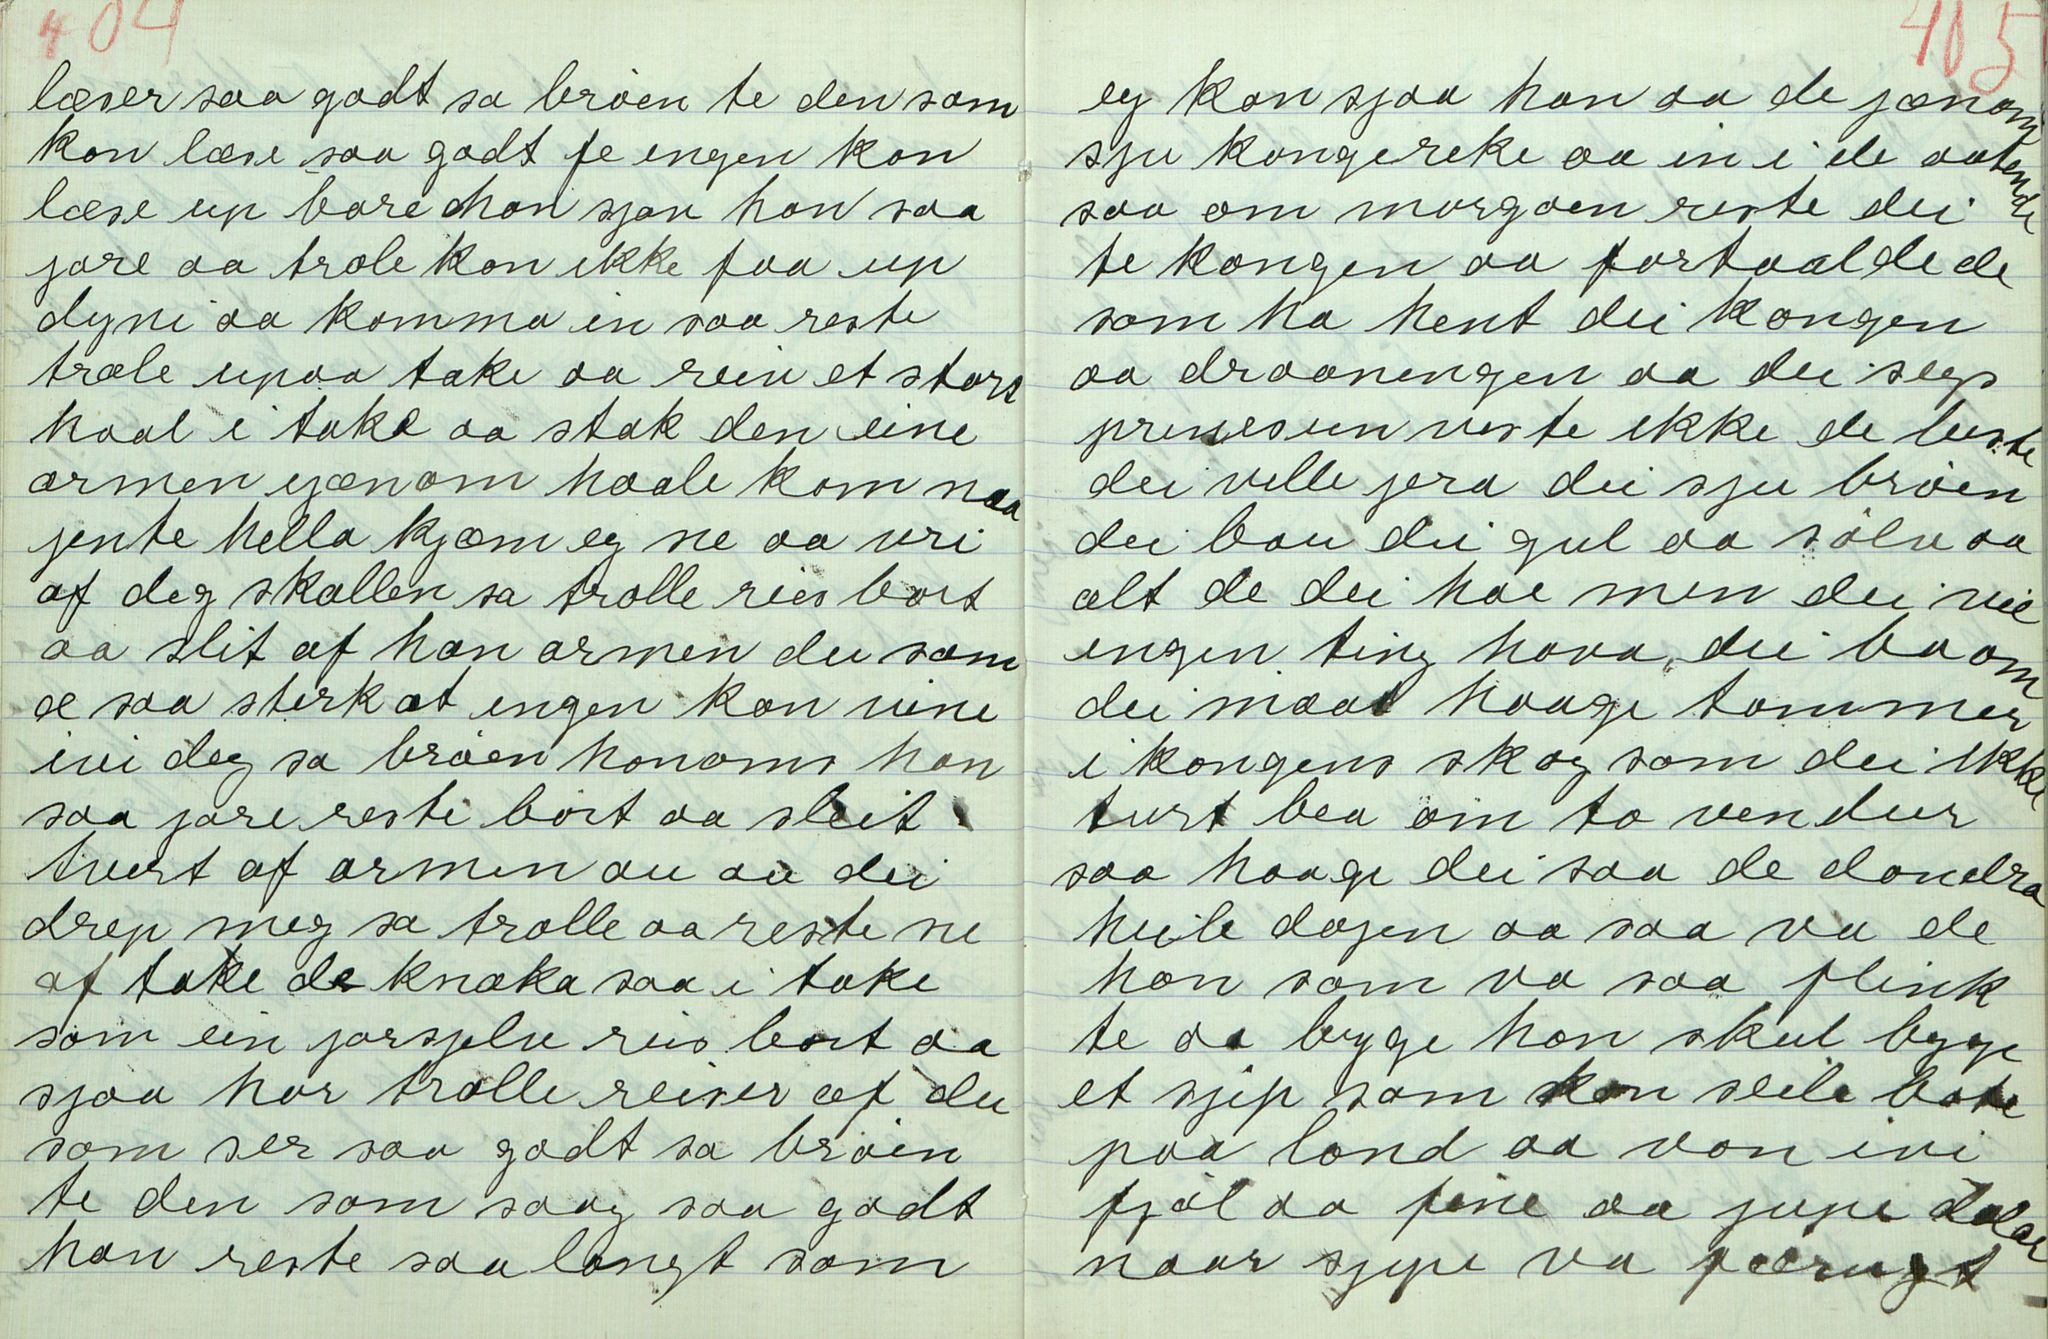 404
læser saa godt sa bröen te den som
kan læse saa godt fe engen kan
læse up bare han sjøv han saa
jore aa trole kan ikke faa up
dyni aa komma in saa reste
træle upaa take aa reiv et stors
haal i take aa stak den eine
armen gjænom haale kom naa
jente hella kjæm eg ne aa vri
af deg skallen sa trolle reis bort
aa slit af han armen du som
æ saa sterk at engen kan vine
ivi deg sa bröen honoms han
saa jore reste bort aa sleit
tvert af armen au aa dei
drep meg sa trolle aa reste ne
af take de knaka saa i take
som ein jorsjelv reis bort aa
sjaa hor trolle reiser af du
som ser saa godt sa bröen
te den som saag saa godt
han reste saa langt som
405
eg kan sjaa han aa de jænom
sju kongereke aa in i de aatende
saa om morgaen reste dei
te kongen aa fortaalde de
som ha hent dei kongen
aa draaningen aa dei segs
prinsesun veste ikke de beste
dei ville jera dei sju bröen
dei bau dei gul aa sölv aa
alt de dei hae men dei vil
engen ting hava dei ba om
dei maat haage tømmer
i kongens skog som dei ikke
turt bea om to ven dur
saa haage dei saa de dondra
heile dagen aa saa va de
han som va saa flink
te aa byge han skul byge
et sjip som kan seile bode
paa land aa van ivi
fjöl aa fine aa jupe dalar
naar sjipe va færugt